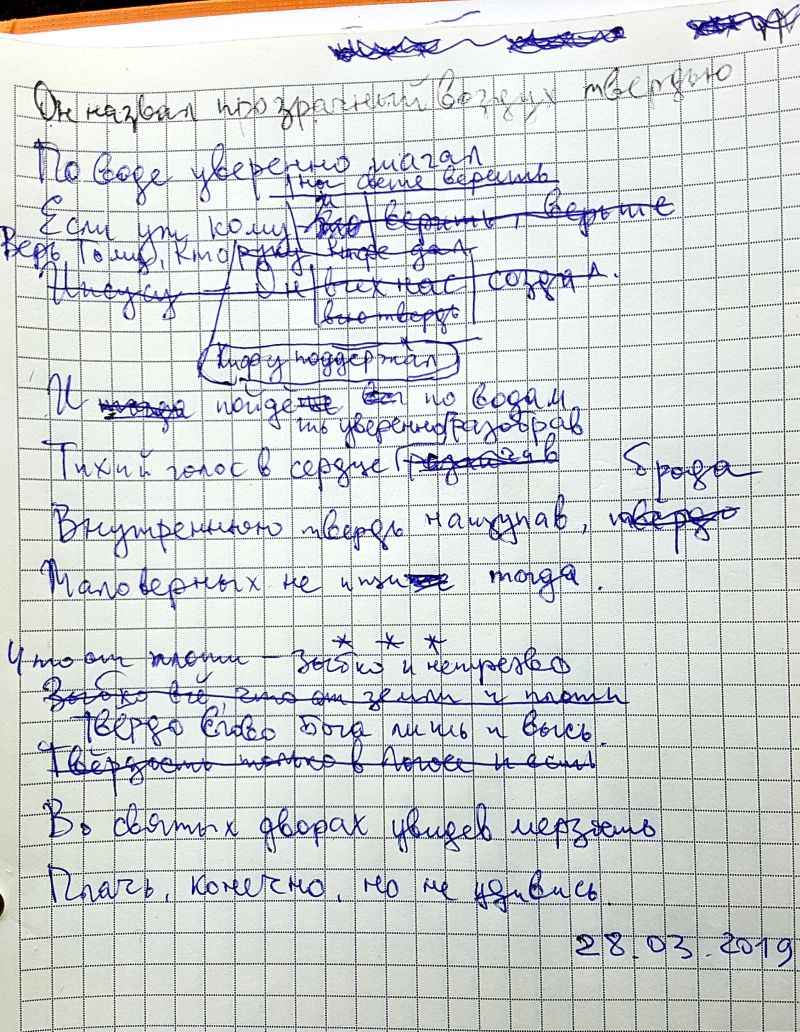 Он назвал прозрачный воздух твердью
По воде уверенно шагал
на свете верить
Если уж кому и верить, верьте
Верь Тому, Кто руку
Иисусу – Он всех нас создал.
всю твердь
Кифу поддержал
И пойдёте по водам
ть уверенно разобрав
Тихий голос в сердце
брода
Внутреннюю твердь нащупав, твёрдо
Маловерных не ищи тогда.
* * *
Что от плоти – зыбко и нетрезво
Зыбко всё, что от земли и плоти
Твердо Слово Бога лишь и высь.
Твёрдость только в Логосе и есть
Во святых дворах увидев мерзость
Плачь, конечно, но не удивись.
28.03.2019